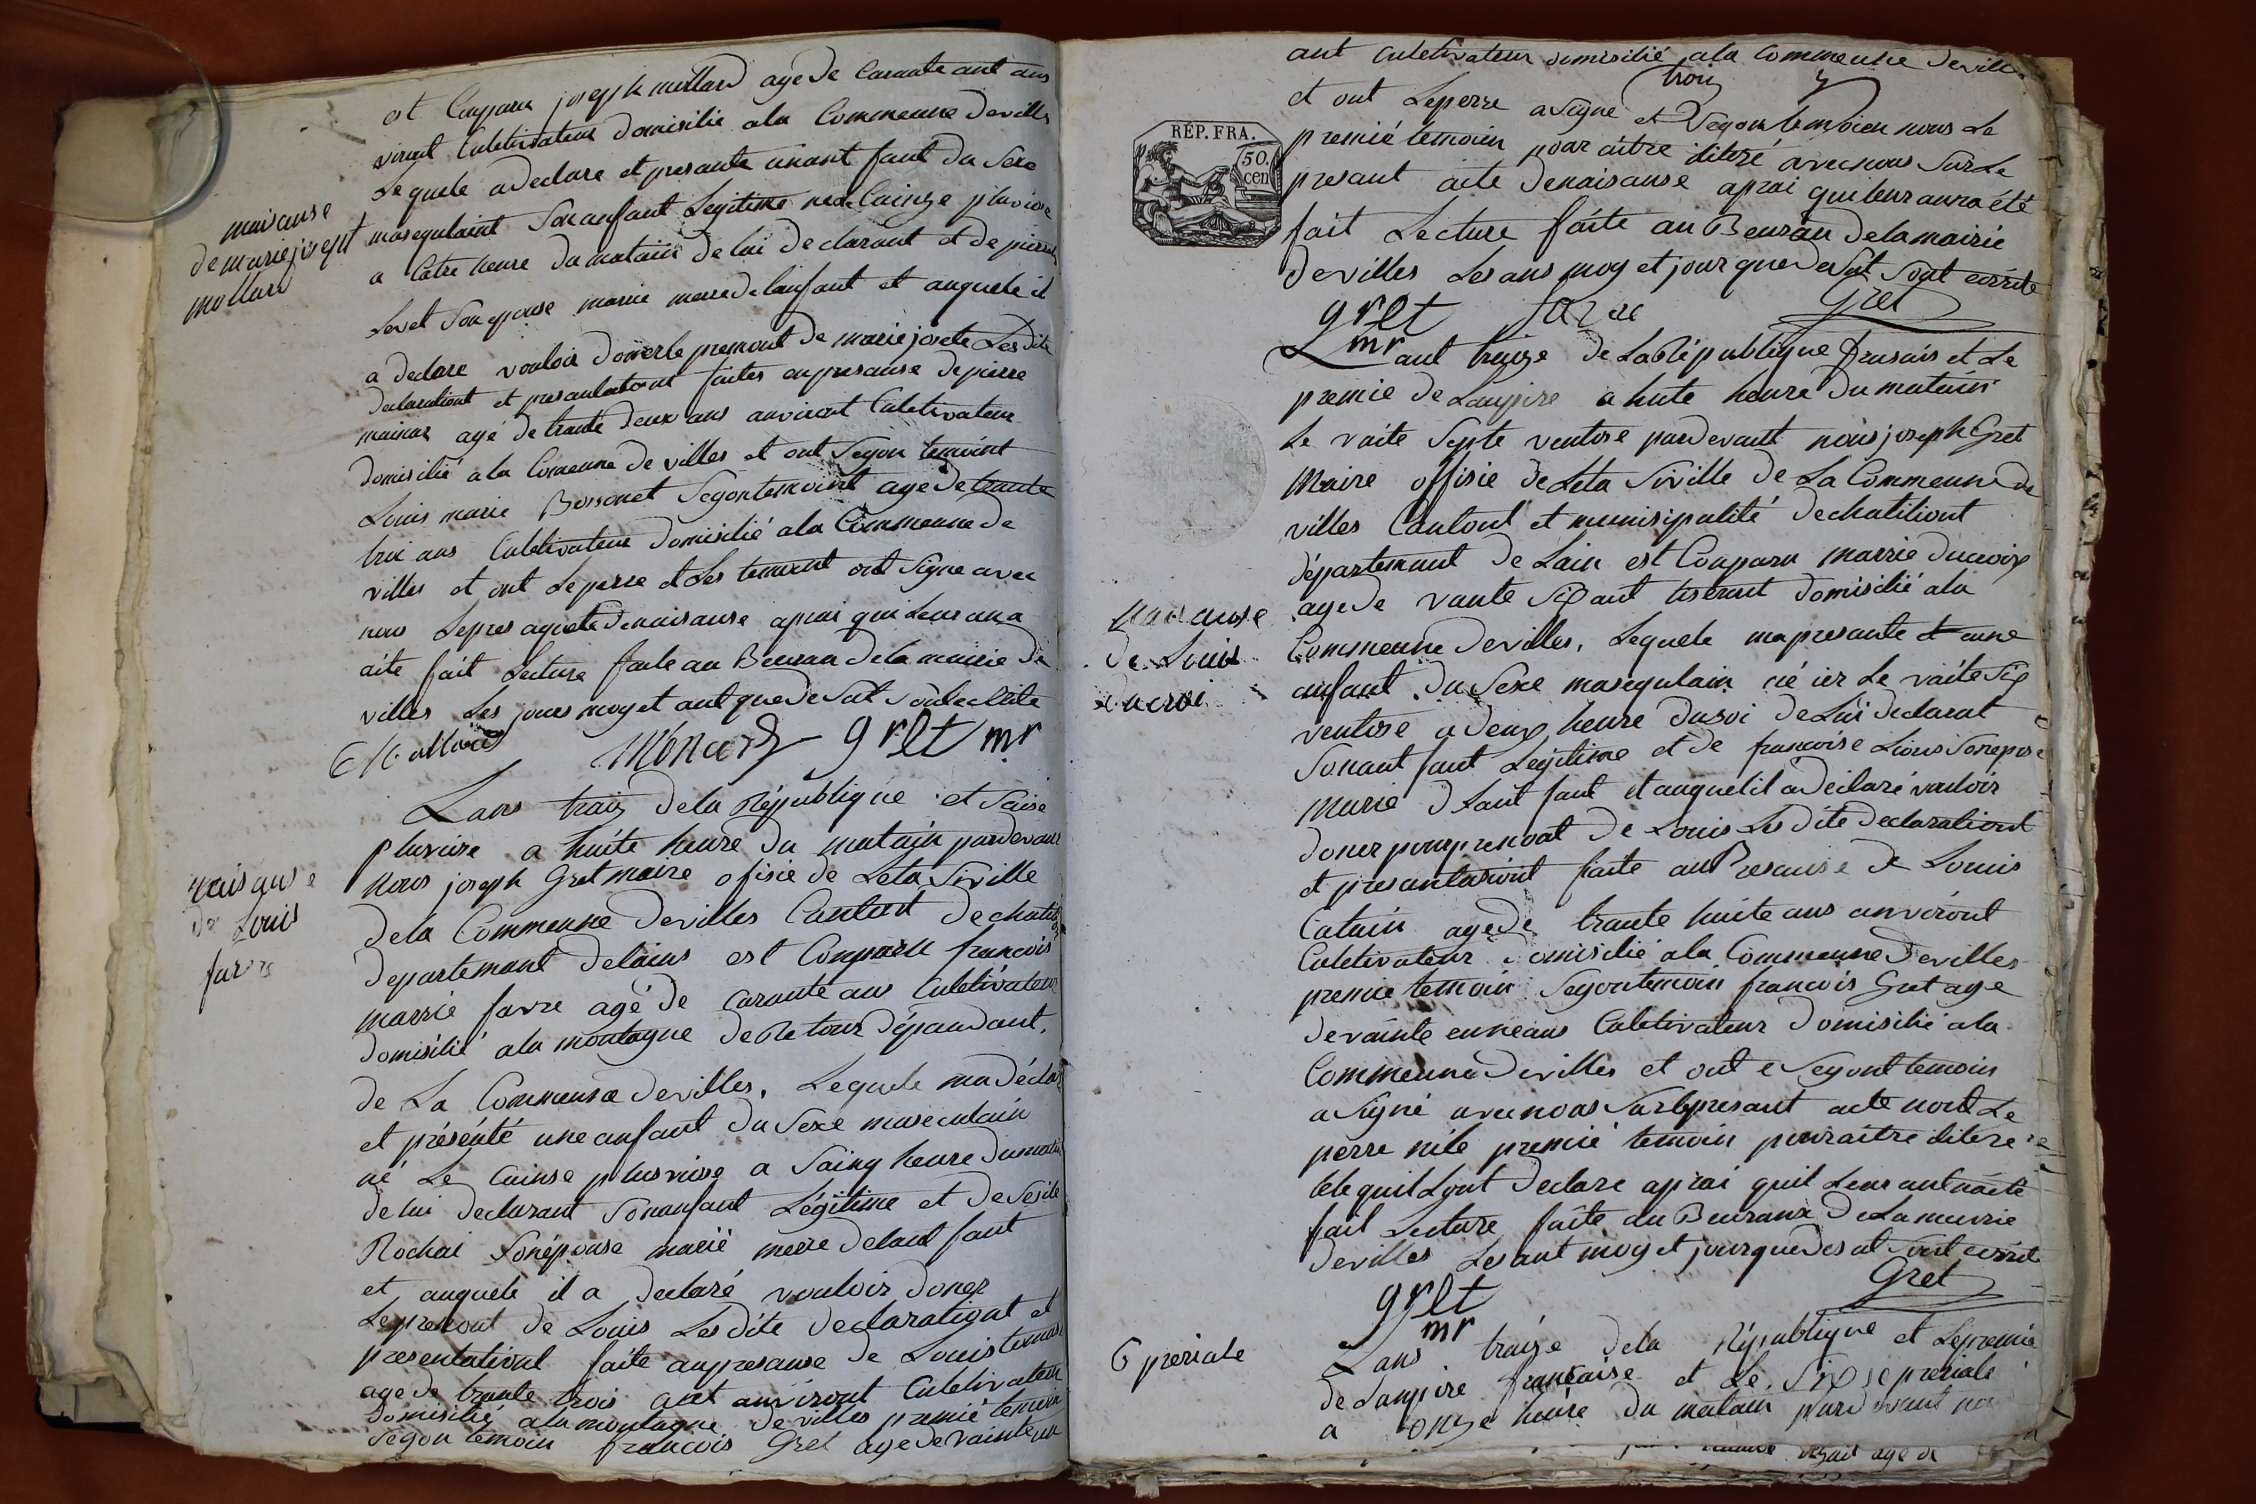 et Conparu joseph mollard age de Carante ant ans
viront Culetivateur domisilie ala Commeune de villes
Le quele a declare et presante unant fant du Sexe
naisause
de marie josept
mollard
masequlaint Son anfant Legitime ne Le Cainze pluviose
a Catre heure du mataiin de lui declarant et de pierrette
Levet Son epouse marie merre de lanfant et auquele il
a declare vouloir doner le prenont de marie josete Les dite
declarationt et presantationt faites en presause de pierre
age de trante deux ans anviront Culetivateur
domisilié a la Comeune de villes et ont Segon temoint
Louis marie Bossonet Segontemoint age de trante
troi ans Culetivateur domisilié ala Commeune de
villes et ont Le perre et Les temoint ont Signe avec
nous Le pres aquete de naisause aprai qui Leur an a
aite fait Lecture faite au Beurau de la mairie de
villes Les jours moy et ant que de Sut
grlt mr
Lans traiz de la République et Saise
pluviose a huite heure du matain pardevant
naisause
de Louis
favre
nous joseph Gret maire ofisie de Leta Siville
de la Commeune de villes Cantont de chatill
departemant delains est Conparu francois
marrie favre agé de Carante ans Culetivateur
domisilié ala montagne de Retour dépandant
de La Commeune de villes, Lequele ma déclar
et présénté une anfant du Sexe masculain
né Le Cainse plusviose a Sainq heure du matin
de lui declarant Son anfant Légitime et de Sesile
Rochai Sonépouse marië merre delant fant
et auquele il a declaré vouloir doner
Le prenont de Louis Les dite declarationt et
presentationt faite anpresause de Louis
age de trante trois ant anviront Culetivateur
domisilié ala montagne de villes premié temoin
Segon temoin francois Gret age de vainte un
ant Culetivateur domisilié ala Commeune de villes
et ont Le perre a Signe et Segon temoien nous Le
premié temoien pour aitre iliteré avec nous Sur Le
RÉP. FRA.
50.
cen
presant aite de naisause aprai qui leur aura été
fait Lecture faite au Beurau de la mairie
de villes Les ans moy et jour que de Sut Sont ecrite
grlt favre Gret
mr
Lant traize de La République fransais et Le
premie de Lanpire a huite heure du mataiin
Le vaite Septe ventose par devant nous joseph Gret
Maire offisie de Leta Siville de La Commeune de
villes Cantont et munisipalité de chatilliont
départemant de Lain est Conparu marrie ducroix
age de vante Six ant tiserant domisilié ala
naisause
de Louis
ducroi
Commeune de villes, Lequele ma presante et une
anfant du Sexe masequlain né ier Le vaite Six
ventose a deux heure du soi de Lui declarat
Son ant fant Légitime et de francoise Lions Son epose
marie d Lant fant et auquel il a declaré vouloir
doner pour prenont de Louis Les dite declarationt
et presantasiont faite an Presause de Louis
Catain age de trante huite ans anviront
Culetivateur domisilié ala Commeune de villes
premie temoin Segontemoin francois Gret age
de vainte enneans Culetivateur domisilié ala
Commeune de villes et ont e Segont temoin
a Signé avec nous Sur le presant acte nont Le
perre ni le premié temoin pour aitre ilitere
tele quil Lont declare aprai quil Leur ant naete
fait Lecture faite au Beuraux de La meirie
de villes Les ant moy et jour que desut Sont ecrit
grlt Gret
mr
6 preriale
Lans traize de la République et Le premie
de Lanpire francaise et Le Sixe preriale
a onze heure du matain pardevant nou